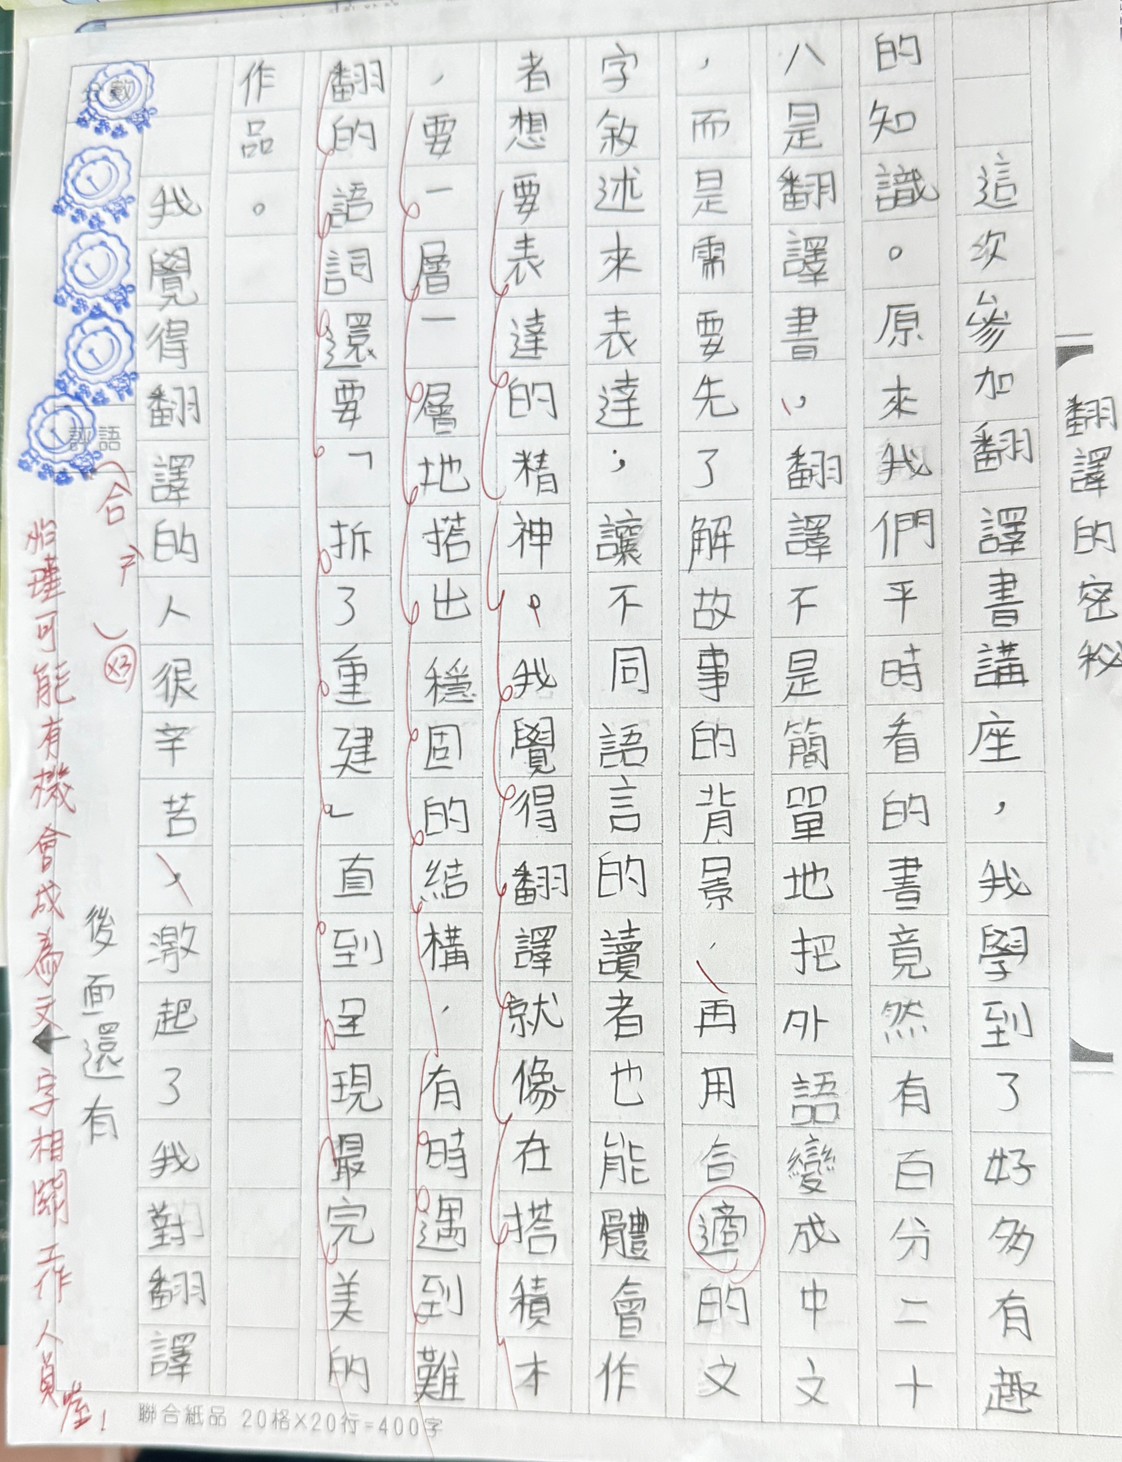 翻譯的密秘
這次參加翻譯書講座，我學到了好多有趣
的知識。原來我們平時看的書竟然有百分二十
八是翻譯書，翻譯不是簡單地把外語變成中文
，而是需要先了解故事的背景，再用合適的文
字敘述來表達；讓不同語言的讀者也能體會作
者想要表達的精神。我覺得翻譯就像在搭積木
，要一層一層地搭出穩固的結構，有時遇到難
翻的語詞還要「拆了重建」直到呈現最完美的
作品。
我覺得翻譯的人很辛苦，激起了我對翻譯
後面還有
評語
合
×3
可能有機會成為文字相關工作人員喔！
聯合紙品 20格×20行=400字